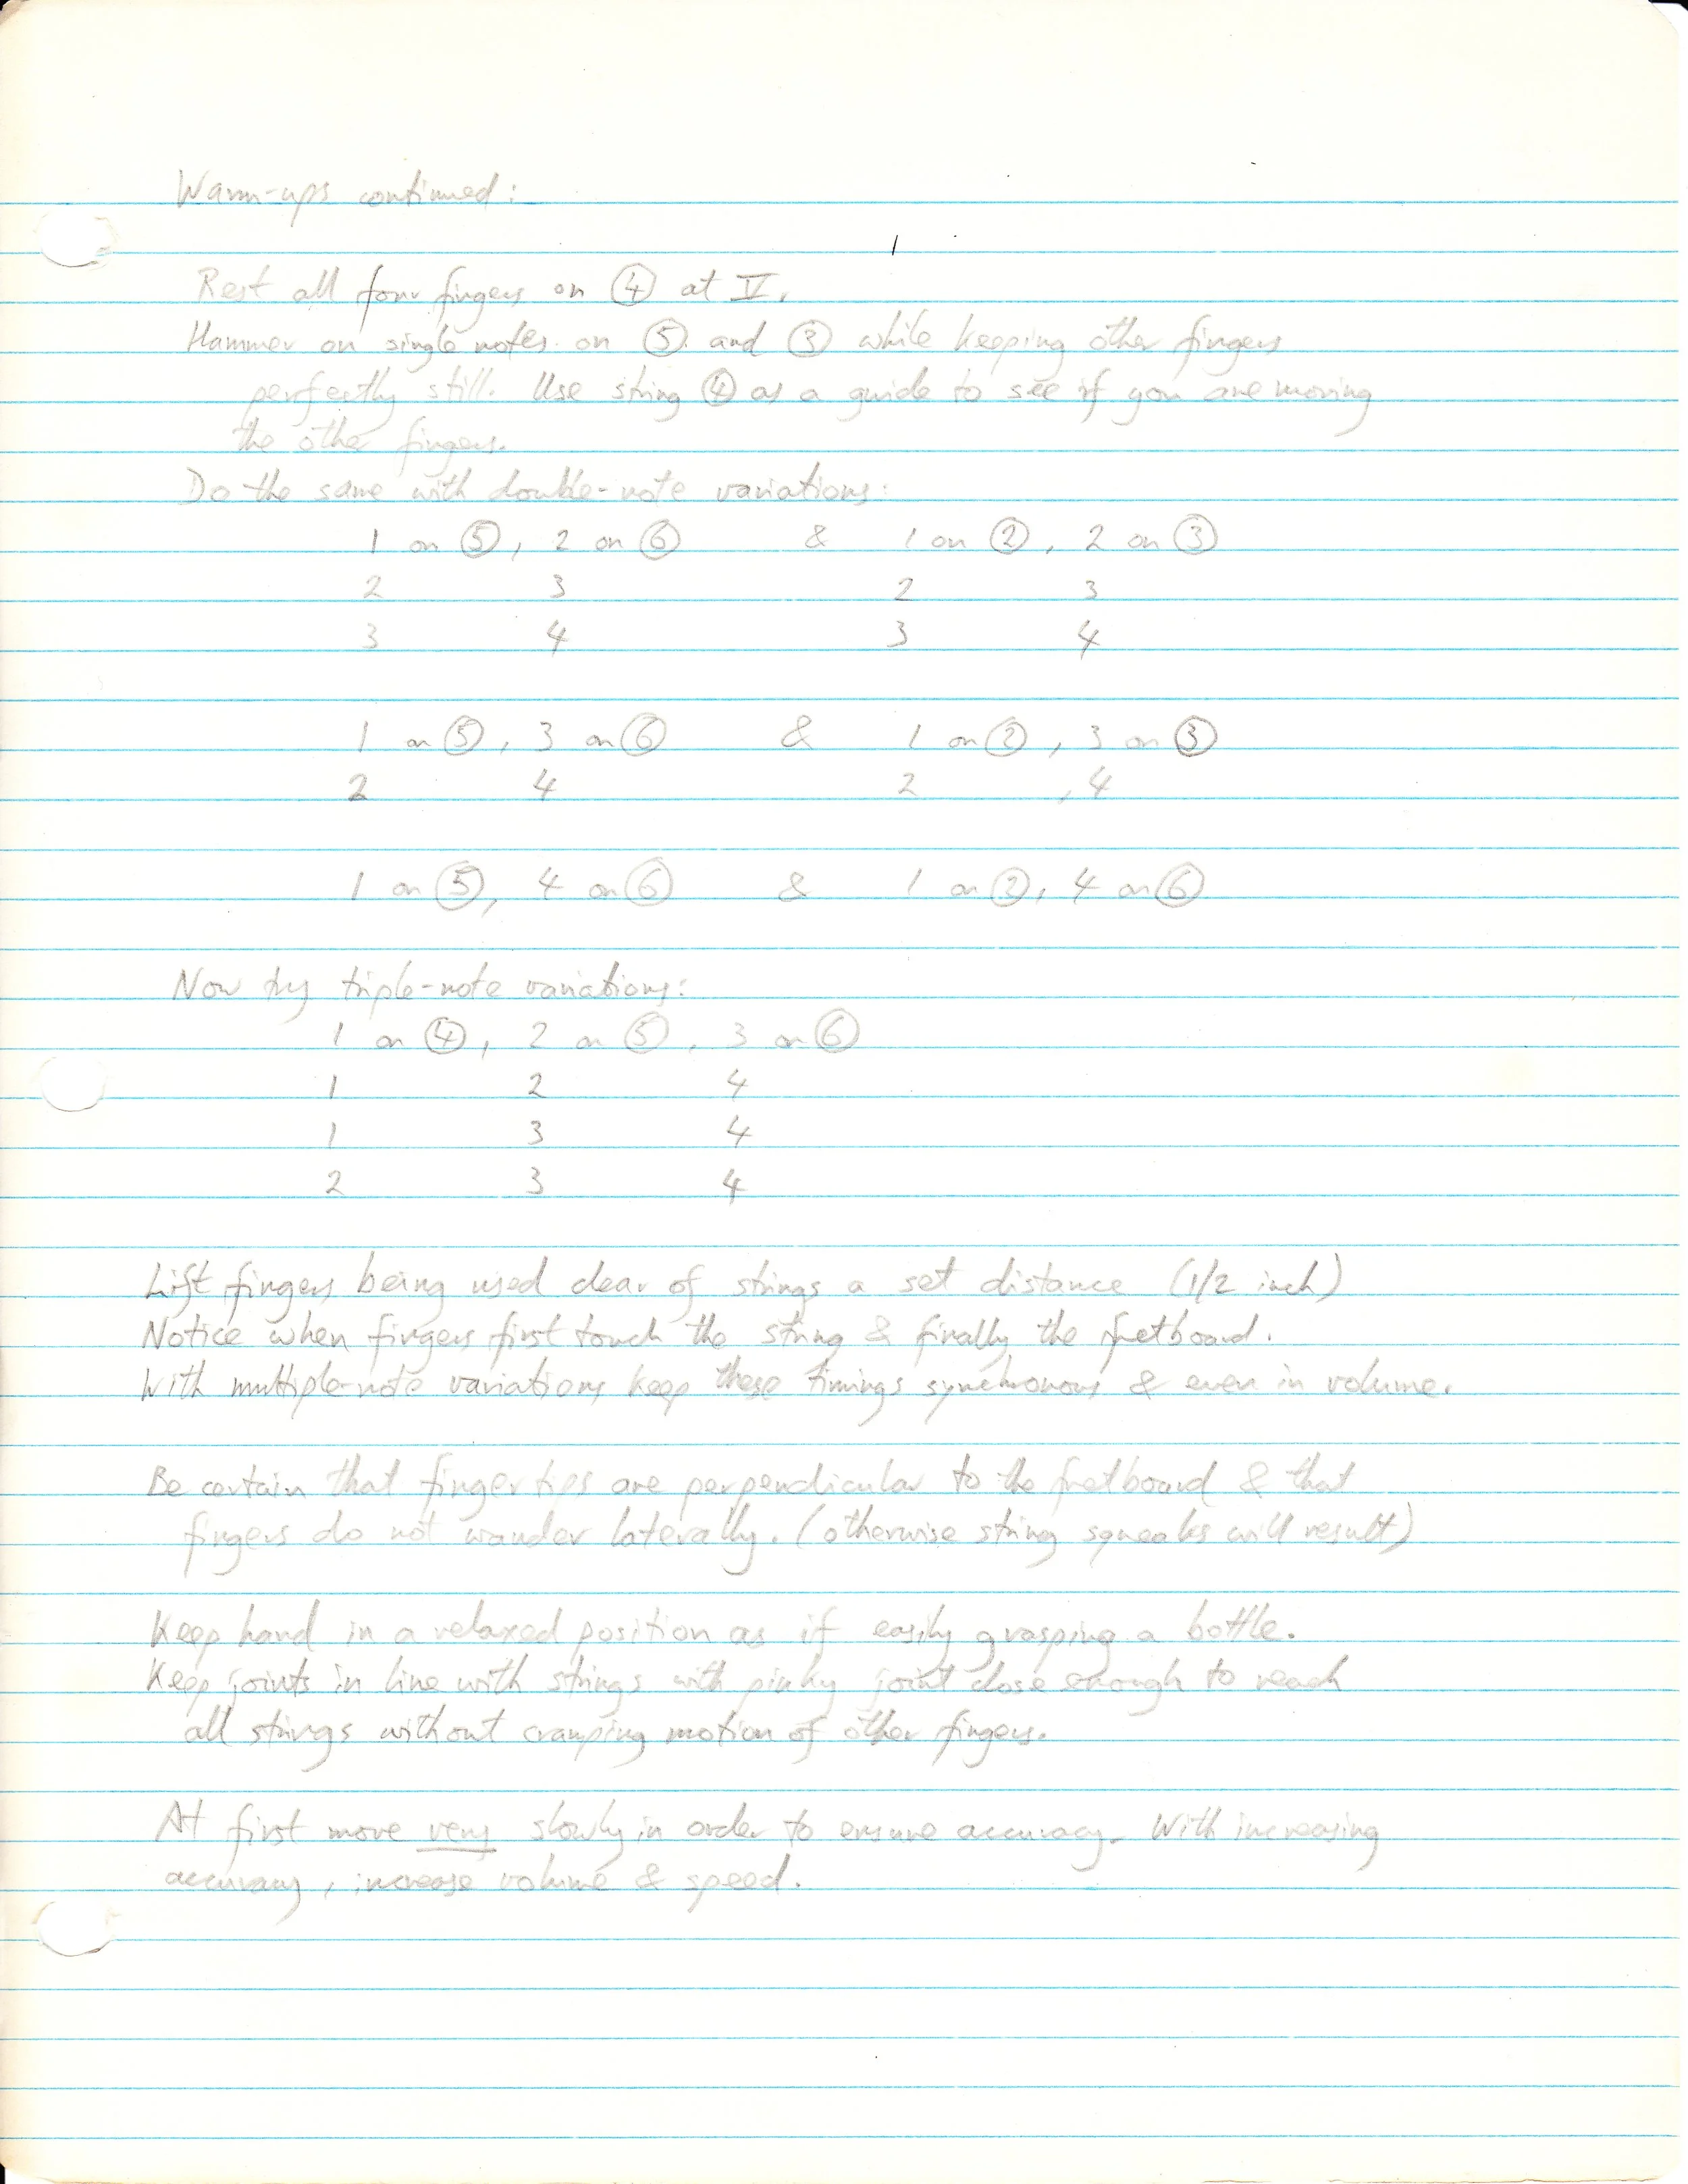 Warm-ups continued:
Rest all four fingers on ④ at V.
Hammer on single notes on ⑤ and ③ while keeping other fingers
perfectly still. Use string ④ as a guide to see if you are moving
the other fingers.
Do the same with double-note variations:
1 on ⑤, 2 on ⑥ & 1 on ②, 2 on ③
2 3 2 3
3 4 3 4
1 on ⑤, 3 on ⑥ & 1 on ②, 3 on ③
2 4 2 , 4
1 on ⑤, 4 on ⑥ & 1 on ②, 4 on ⑥
Now try triple-note variations:
1 on ④, 2 on ⑤, 3 on ⑥
1 2 4
1 3 4
2 3 4
Lift fingers being used clear of strings a set distance (1/2 inch)
Notice when fingers first touch the string & finally the fretboard.
With multiple-note variations keep these timings synchronous & even in volume.
Be certain that fingertips are perpendicular to the fretboard & that
fingers do not wander laterally. (otherwise string squeaks will result)
Keep hand in a relaxed position as if easily grasping a bottle.
Keep joints in line with strings with pinky joint close enough to reach
all strings without cramping motion of other fingers.
At first move very slowly in order to ensure accuracy. With increasing
accuracy, increase volume & speed.